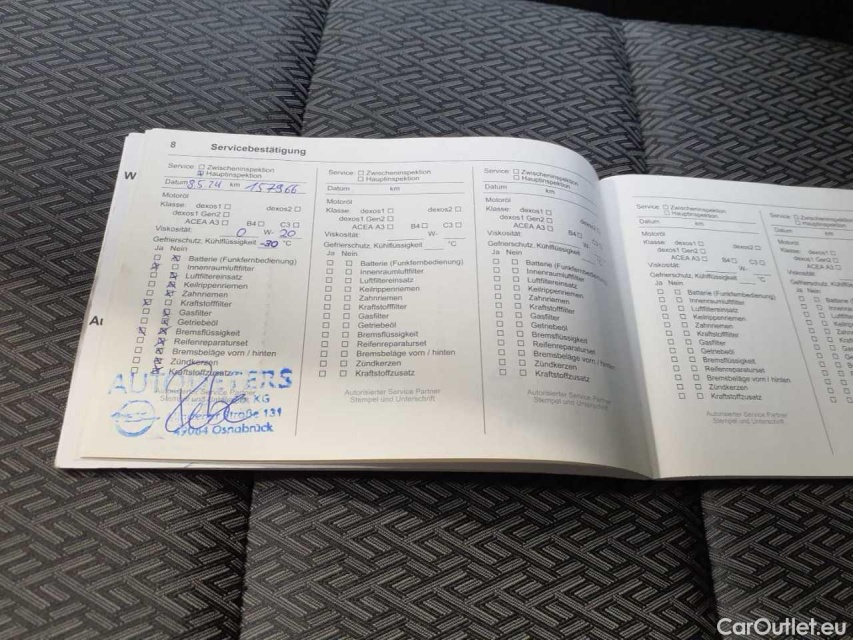 8 Servicebestätigung
W
Al
Service: Zwischeninspektion
Hauptinspektion
Datum 8.5.24 km 157966
Motoröl
Klasse: dexos1 dexos2
dexos1 Gen2
ACEA A3 B4 C3
Viskosität: 0 W- 20
Gefrierschutz, Kühlflüssigkeit -30 °C
Ja Nein
Batterie (Funkfernbedienung)
Innenraumluftfilter
Luftfiltereinsatz
Keilrippenriemen
Zahnriemen
Kraftstofffilter
Gasfilter
Getriebeöl
Bremsflüssigkeit
Reifenreparaturset
Bremsbeläge vorn / hinten
Zündkerzen
Kraftstoffzusatz
Autorisierter Service Partner
KG
Straße 131
Osnabrück
Service: Zwischeninspektion
Hauptinspektion
Datum km
Motoröl
Klasse: dexos1 dexos2
dexos1 Gen2
ACEA A3 B4 C3
Viskosität: W-
Gefrierschutz, Kühlflüssigkeit °C
Ja Nein
Batterie (Funkfernbedienung)
Innenraumluftfilter
Luftfiltereinsatz
Keilrippenriemen
Zahnriemen
Kraftstofffilter
Gasfilter
Getriebeöl
Bremsflüssigkeit
Reifenreparaturset
Bremsbeläge vorn / hinten
Zündkerzen
Kraftstoffzusatz
Autorisierter Service Partner
Stempel und Unterschrift
Service: Zwischeninspektion
Hauptinspektion
Datum km
Motoröl
Klasse: dexos1
dexos1 Gen2
ACEA A3 B4 C3
Viskosität: W-
Gefrierschutz, Kühlflüssigkeit
Ja Nein
Batterie (Funkfernbedienung)
Innenraumluftfilter
Luftfiltereinsatz
Keilrippenriemen
Zahnriemen
Kraftstofffilter
Gasfilter
Getriebeöl
Bremsflüssigkeit
Reifenreparaturset
Bremsbeläge vorn / hinten
Zündkerzen
Kraftstoffzusatz
Autorisierter Service Partner
Stempel und Unterschrift
Service: Zwischeninspektion
Hauptinspektion
Datum km
Motoröl
Klasse: dexos1 dexos2
dexos1 Gen2
ACEA A3 B4 C3
Viskosität: W-
Gefrierschutz, Kühlflüssigkeit °C
Ja Nein
Batterie (Funkfernbedienung)
Innenraumluftfilter
Luftfiltereinsatz
Keilrippenriemen
Zahnriemen
Kraftstofffilter
Gasfilter
Getriebeöl
Bremsflüssigkeit
Reifenreparaturset
Bremsbeläge vorn / hinten
Zündkerzen
Kraftstoffzusatz
Autorisierter Service Partner
Stempel und Unterschrift
Service:
Datum
Motoröl
Klasse: dexos1
dexos1 Gen2
ACEA A3
Viskosität:
Gefrierschutz,
Ja Nein
CarOutlet.eu